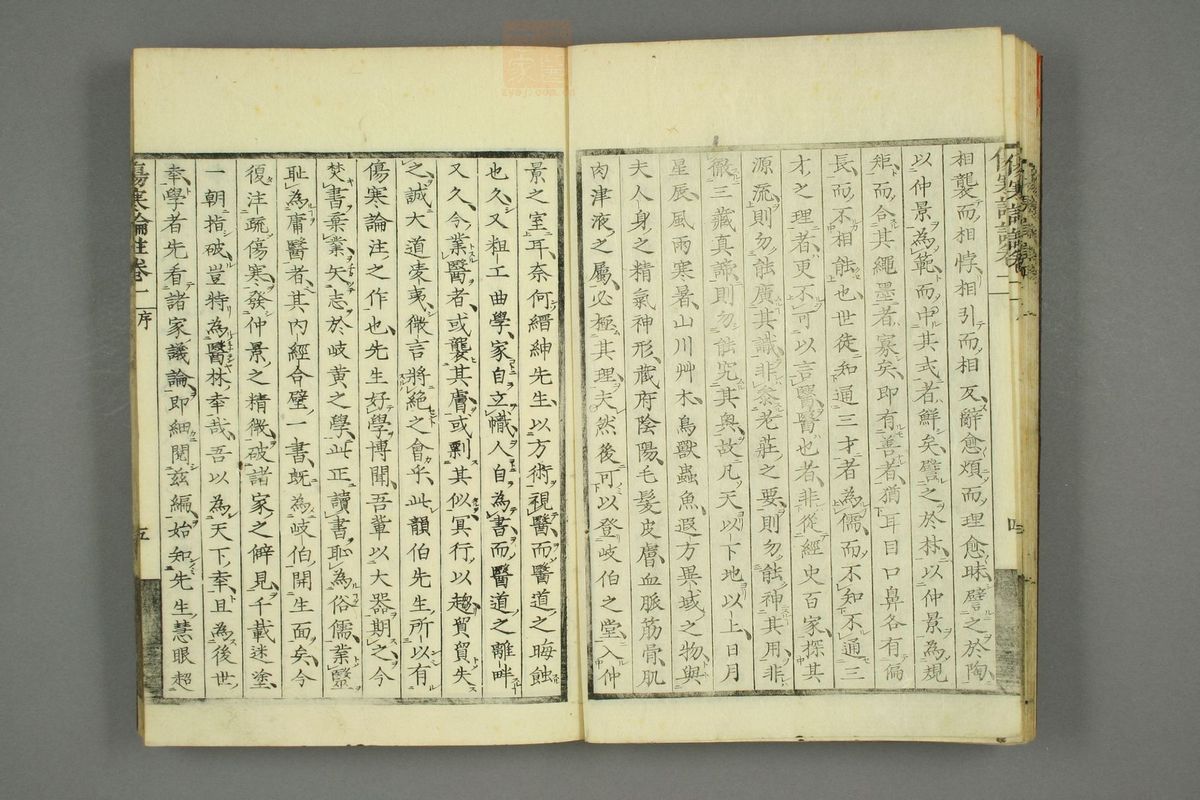 相襲而相悖相引而相反辭愈煩而理愈昧譬之於陶
以仲景為範而中其式者鮮矣譬之於林以仲景為規
矩而合其繩墨者寡矣即有善者猶耳目口鼻各有偏
長而不相蝕也世徒知通三才者為儒而不知不通三
才之理者更不可以言醫醫也者非從經史百家探其
源流則勿能廣其識非參老莊之要則勿能神其用非
徹三藏真諦則勿能究其奥故凡天以下地以上日月
星辰風雨寒暑山川艸木鳥獸蟲魚遐方異域之物與
夫人身之精氣神形藏府陰陽毛髮皮膚血脈筋骨肌
肉津液之屬必極其理夫然後可以登岐伯之堂入仲
景之室耳奈何縉紳先生以方術視醫而醫道之晦蝕
也久又粗工曲學家自立幟人自為書而醫道之離畔
又久今業醫者或襲其膚或剽其似冥行以趨貿貿失
之誠大道凌夷微言將絶之會乎此韻伯先生所以有
傷寒論注之作也先生好學博聞吾輩以大器期之今
焚書棄業矢志於岐黄之學此正讀書恥為俗儒業醫
恥為庸醫者其内經合璧一書既為岐伯開生面矣今
復注疏傷寒發仲景之精微破諸家之僻見千載迷塗
一朝指破豈特為醫林幸哉吾以為天下幸且為後世
幸學者先看諸家議論即細閲茲編始知先生慧眼超
傷寒論註卷一
序
五